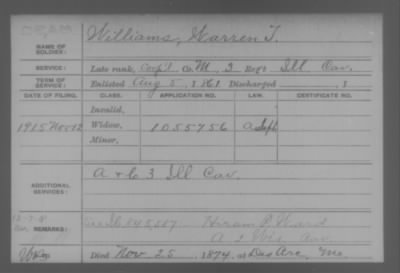 NAME OF SOLDIER: Williams, Warren T.
SERVICE: Late rank, Corp'l Co. M, 3 Reg't Ill. Cav.
TERM OF SERVICE: Enlisted Aug 5, 1861 Discharged , 1
DATE OF FILING. CLASS. APPLICATION NO. LAW. CERTIFICATE NO.
Invalid,
1915 Nov 12 Widow, 1055756
Minor,
ADDITIONAL SERVICES: A & C 3 Ill Cav.
REMARKS: 845,507 Hiram P. Ward
Cav
Died Nov 25 1874, at Des Arc, Mo